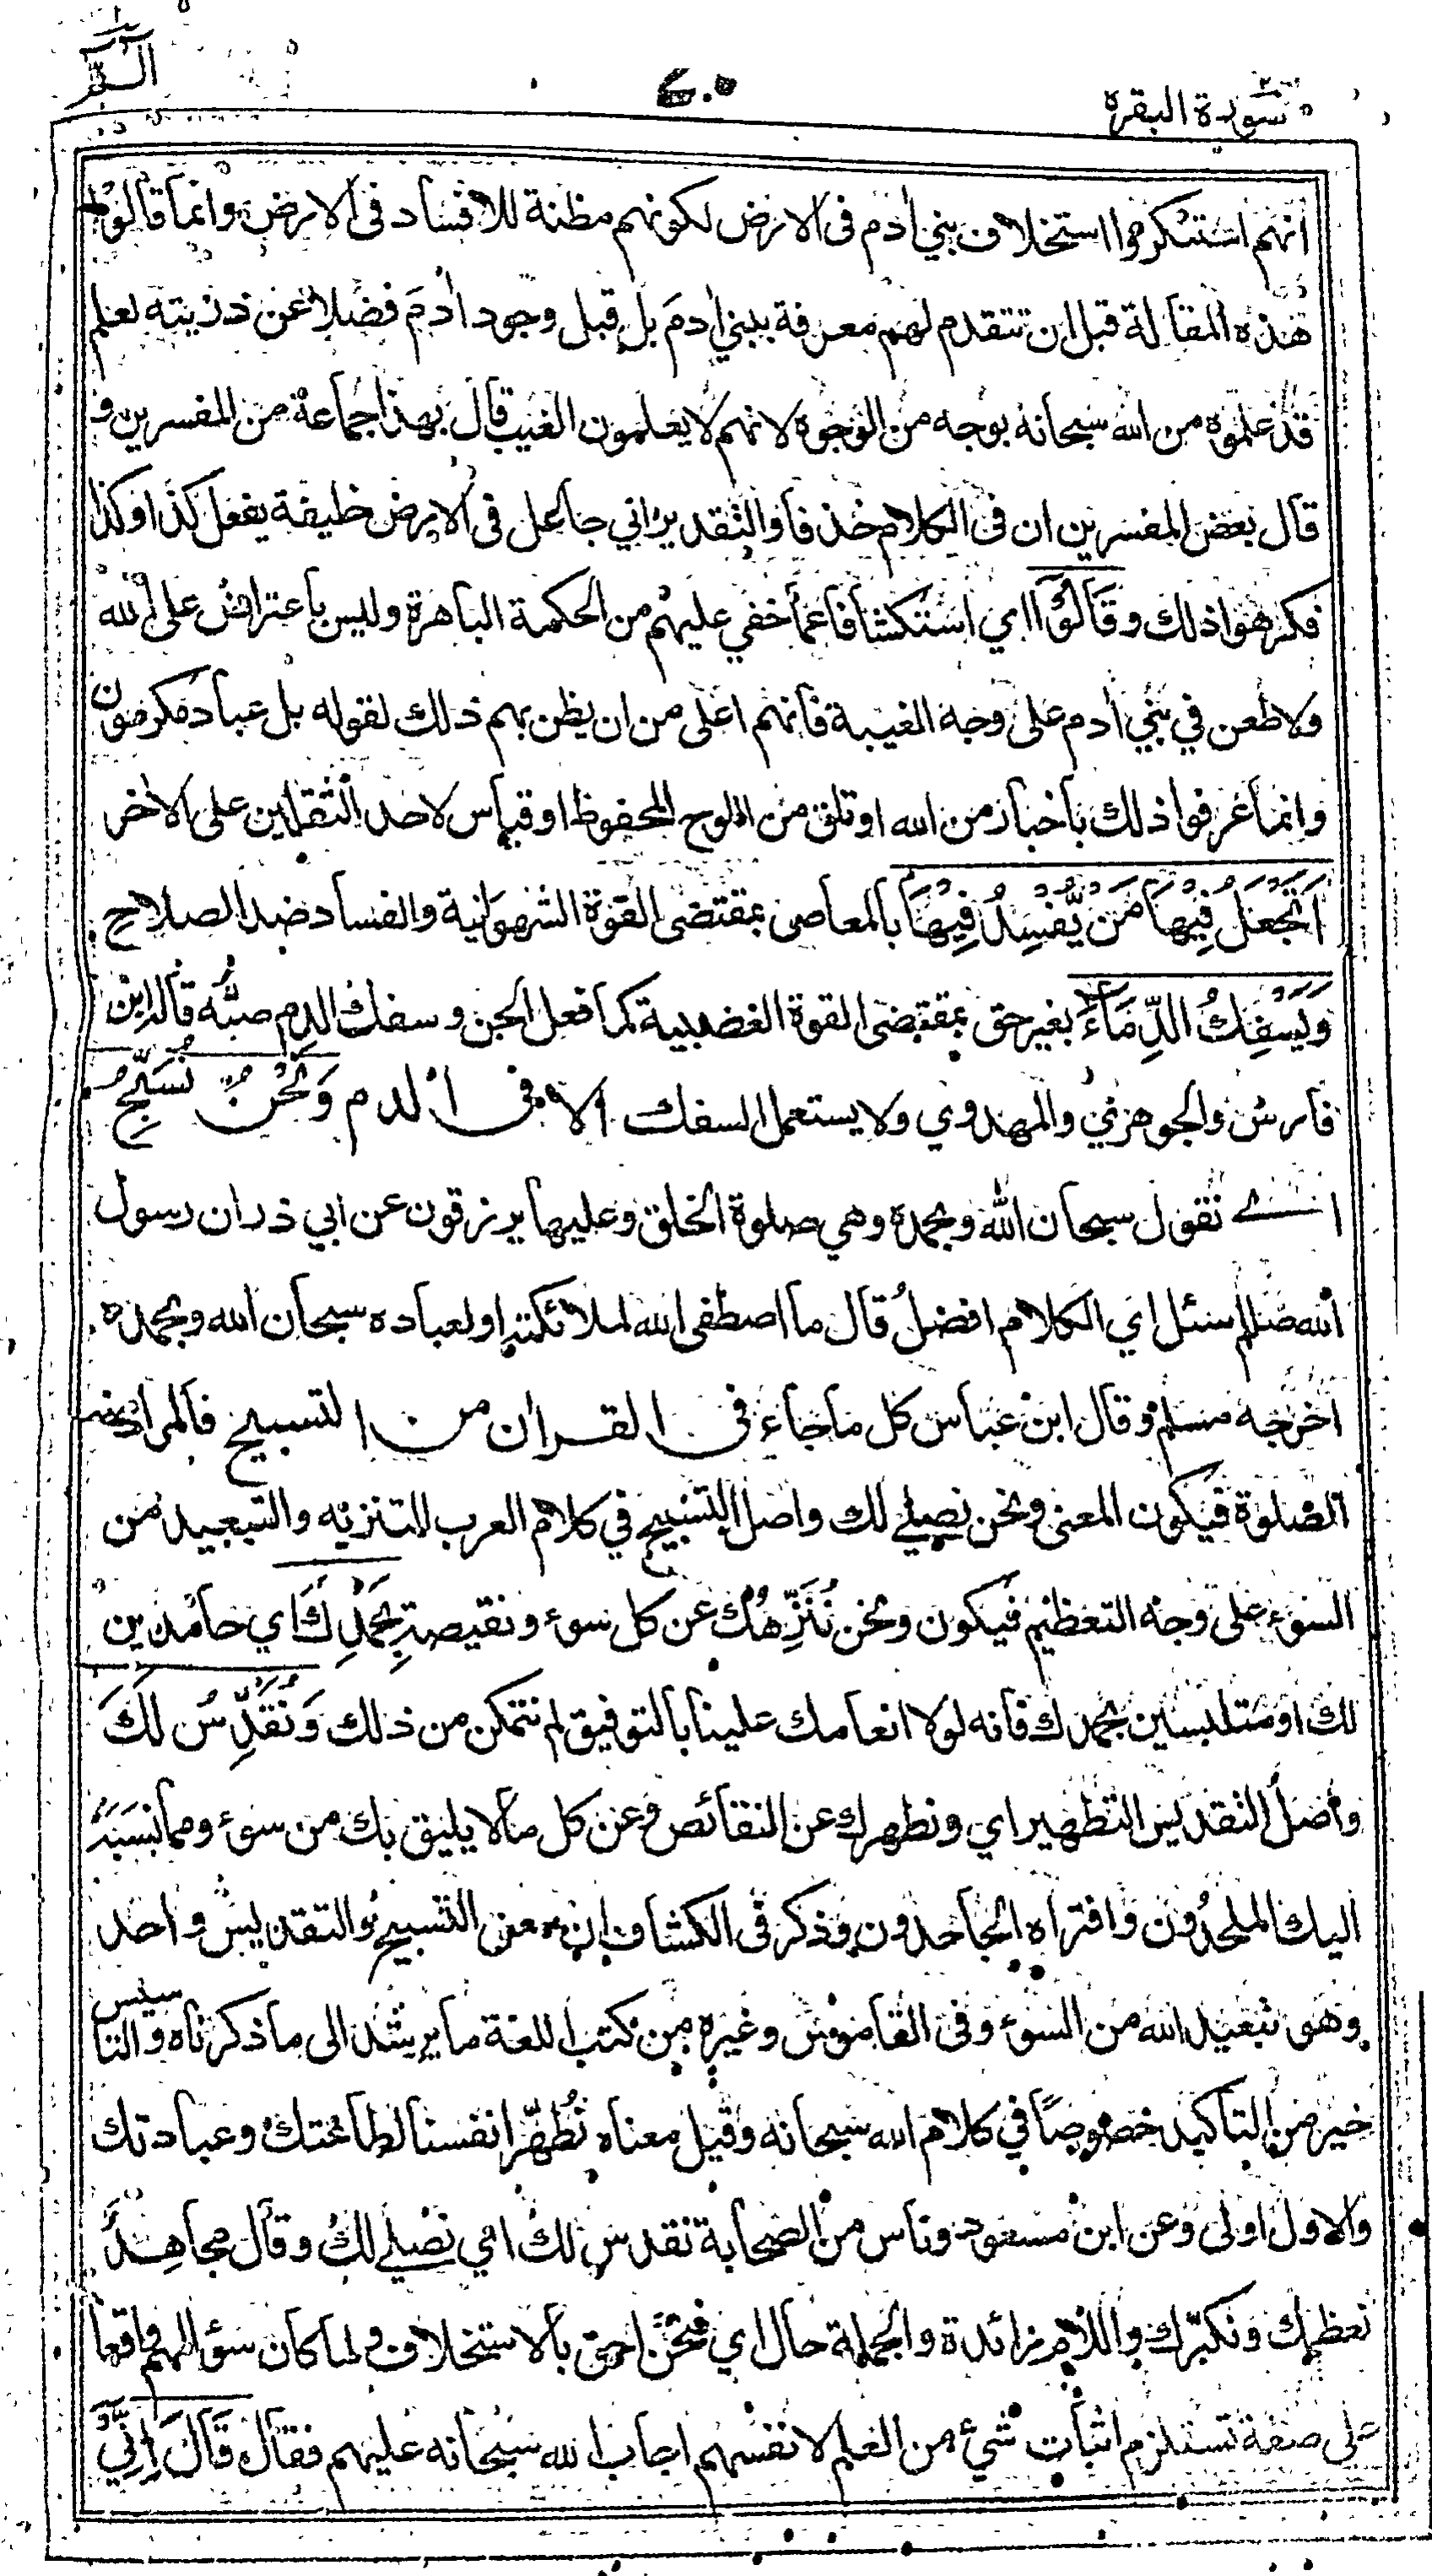 سورة البقرة
الٓمّٓ
انهم استنكروا استخلاف بني أدم فى الارض لكونهم مظنة للافساد فى الارض وانما قالوا
هذه المقالة قبل ان تتقدم لهم معرفة ببني أدم بل قبل وجود أدم فضلا عن ذريته لعلم
قد علموه من الله سبحانه بوجه من الوجوه لانهم لا يعلمون الغيب قال بهذا جماعة من المفسرين و
قال بعض المفسرين ان فى الكلام حذفا والتقدير اني جاعل فى الارض خليفة يفعل كذا وكذا
فكرهوا ذلك وَقَالُوْٓا اي استكشافا عما خفي عليهم من الحكمة الباهرة وليس باعتراض على الله
ولا طعن في بني أدم على وجه الغيبة فانهم اعلى من ان يظن بهم ذلك لقوله بل عباد مكرمون
وانما عرفوا ذلك باخبار من الله او تلق من اللوح المحفوظ او قياس لاحد الثقلين على الأخر
اَتَجْعَلُ فِيْهَا مَنْ يُّفْسِدُ فِيْهَا بالمعاصى بمقتضى القوة الشهوانية والفساد ضد الصلاح
وَيَسْفِكُ الدِّمَآءَ بغير حق بمقتضى القوة الغضبية كما فعل الجن وسفك الدم صبُّه قاله ابن
فارس والجوهري والمهدوي ولا يستعمل السفك الا فى الدم وَنَحْنُ نُسَبِّحُ
اى نقول سبحان الله وبحمده وهي صلوة الخلق وعليها يرزقون عن ابي ذر ان رسول
الله صللم سئل اي الكلام افضل قال ما اصطفى الله لملائكته او لعباده سبحان الله وبحمده
اخرجه مسلم وقال ابن عباس كل ما جاء فى القران من التسبيح فالمراد منه
الصلوة فيكون المعنى ونحن نصلے لك واصل التسبيح في كلام العرب التنزيه والتبعيد من
السوء على وجه التعظيم فيكون ونحن نُنَزِّهُك عن كل سوء ونقيصة بِحَمْدِكَ اي حامدين
لك او متلبسين بحمدك فانه لولا انعامك علينا بالتوفيق لم نتمكن من ذلك وَنُقَدِّسُ لَكَ
واصل التقديس التطهير اي ونطهرك عن النقائص وعن كل ما لا يليق بك من سوء ومما نسبه
اليك الملحدون وافتراه الجاحدون وذكر فى الكشاف ان معنى التسبيح والتقديس واحد
وهو تبعيد الله من السوء وفى القاموس وغيره من كتب اللغة ما يرشد الى ما ذكرناه والتاسيس
خير من التاكيد خصوصًا في كلام الله سبحانه وقيل معناه نُطهّر انفسنا لطاعتك وعبادتك
والاول اولى وعن ابن مسعود وناس من الصحابة نقدس لك اي نصلے لك وقال مجاهد
نعظمك ونكبّرك واللام زائدة والجملة حال اي فنحن احق بالاستخلاف ولما كان سؤالهم واقعا
على صفة تستلزم اثبات شيء من العلم لانفسهم اجاب الله سبحانه عليهم فقال قَالَ اِنِّيْٓ